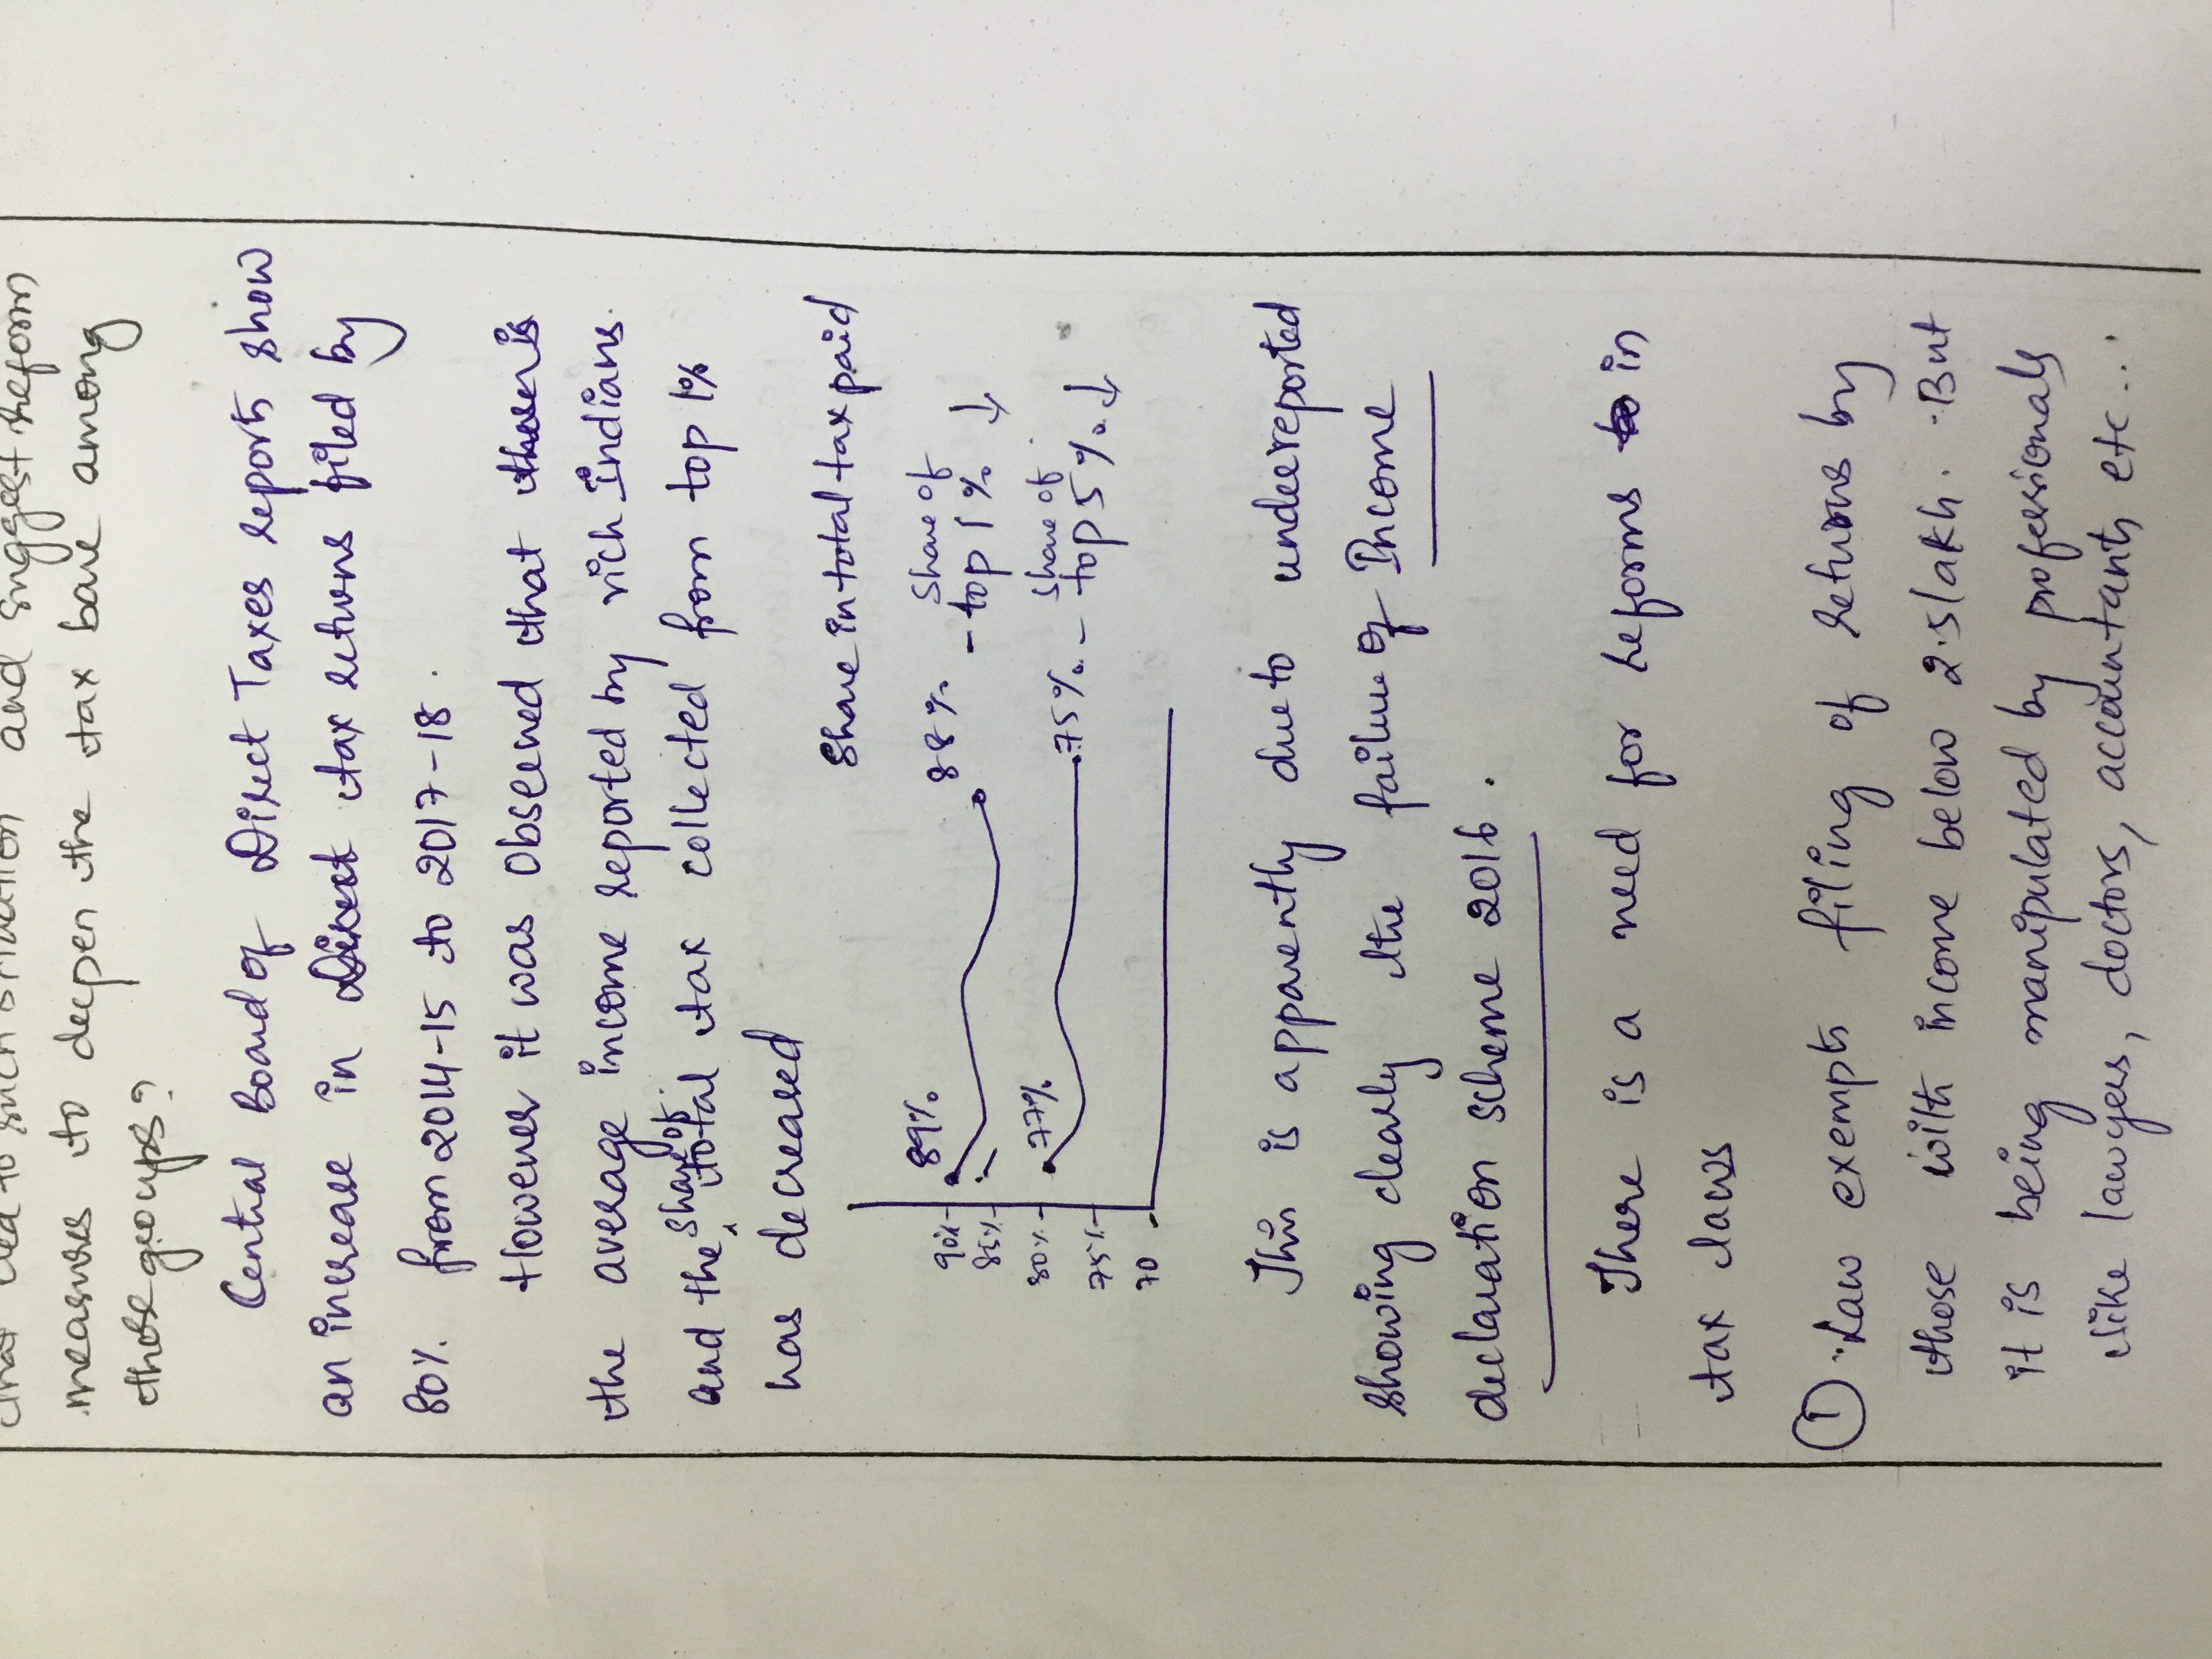 that led to such situation and suggest reform
measures to deepen the tax base among
those groups?
Central Board of Direct Taxes reports show
an increase in direct tax returns filed by
80% from 2014-15 to 2017-18.
However it was observed that there is
the average income reported by rich Indians.
and the share of total tax collected from top 1%
has decreased
Share in total tax paid
90%
85%
80%
75%
70
89%
88% - share of top 1% ↓
77%
75% - share of top 5% ↓
This is apparently due to underreported
showing clearly the failure of Income
declaration scheme 2016.
There is a need for reforms in
tax laws
① Law exempts filing of returns by
those with income below 2.5 lakh. But
it is being manipulated by professionals
like lawyers, doctors, accountants, etc...